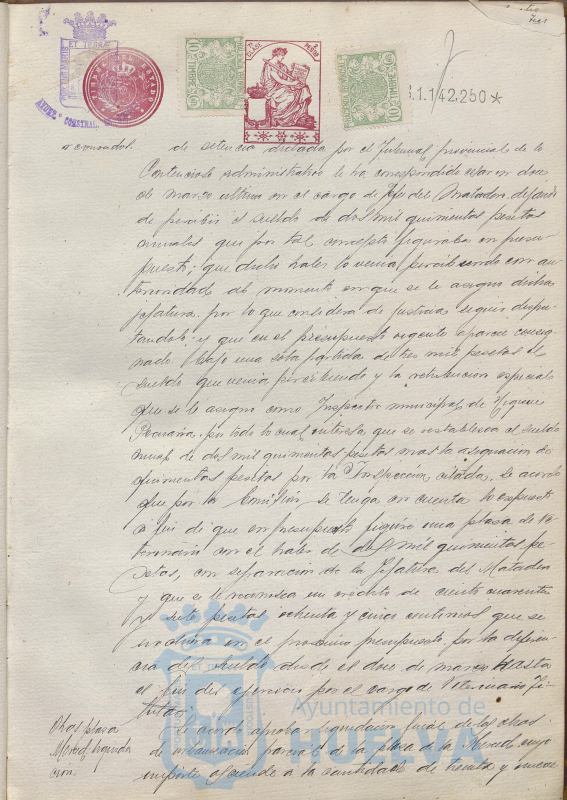 TIMBRE DEL ESTADO
7ª CLASE
2 PESETAS
3.1.142.250*
de sentencia dictada por el Tribunal provincial de lo
Contencioso administrativo le ha correspondido cesar en doce
de marzo ultimo en el cargo de Jefe del Matadero, dejando
de percibir el sueldo de dos mil quinientas pesetas
anuales que por tal concepto figuraba en presu-
puesto; que dicho haber lo venia percibiendo con an-
terioridad al momento en que se le asigno dicha
jefatura, por lo que considera de justicia seguir disfru-
tandolo; y que en el presupuesto vigente aparece consig-
nado bajo una sola partida de tres mil pesetas el
sueldo que venia percibiendo y la retribucion especial
que se le asigno como Inspector municipal de Higiene
Pecuaria, por todo lo cual interesa que se restablezca el sueldo
anual de dos mil quinientas pesetas mas la asignacion de
quinientas pesetas por la Inspección citada, se acordo
que por la Comisión se tenga en cuenta lo expuesto
a fin de que en presupuesto figure una plaza de Ve-
terinario con el haber de dos mil quinientas pe-
setas, con separación de la Jefatura del Matadero
y que se le reconozca un crédito de ciento cuarenta
y siete pesetas ochenta y cinco centimos que se
incluira en el proximo presupuesto por la diferen-
cia del sueldo desde el doce de marzo hasta
el fin del ejercicio por el cargo de Veterinario Ti-
tular.
Obras plaza
Merced, liquida
ción.
Se acordó aprobar liquidación final de las obras
de urbanización parcial de la plaza de la Merced, cuyo
importe asciende a la cantidad de treinta y nueve
Ayuntamiento de
HUELVA